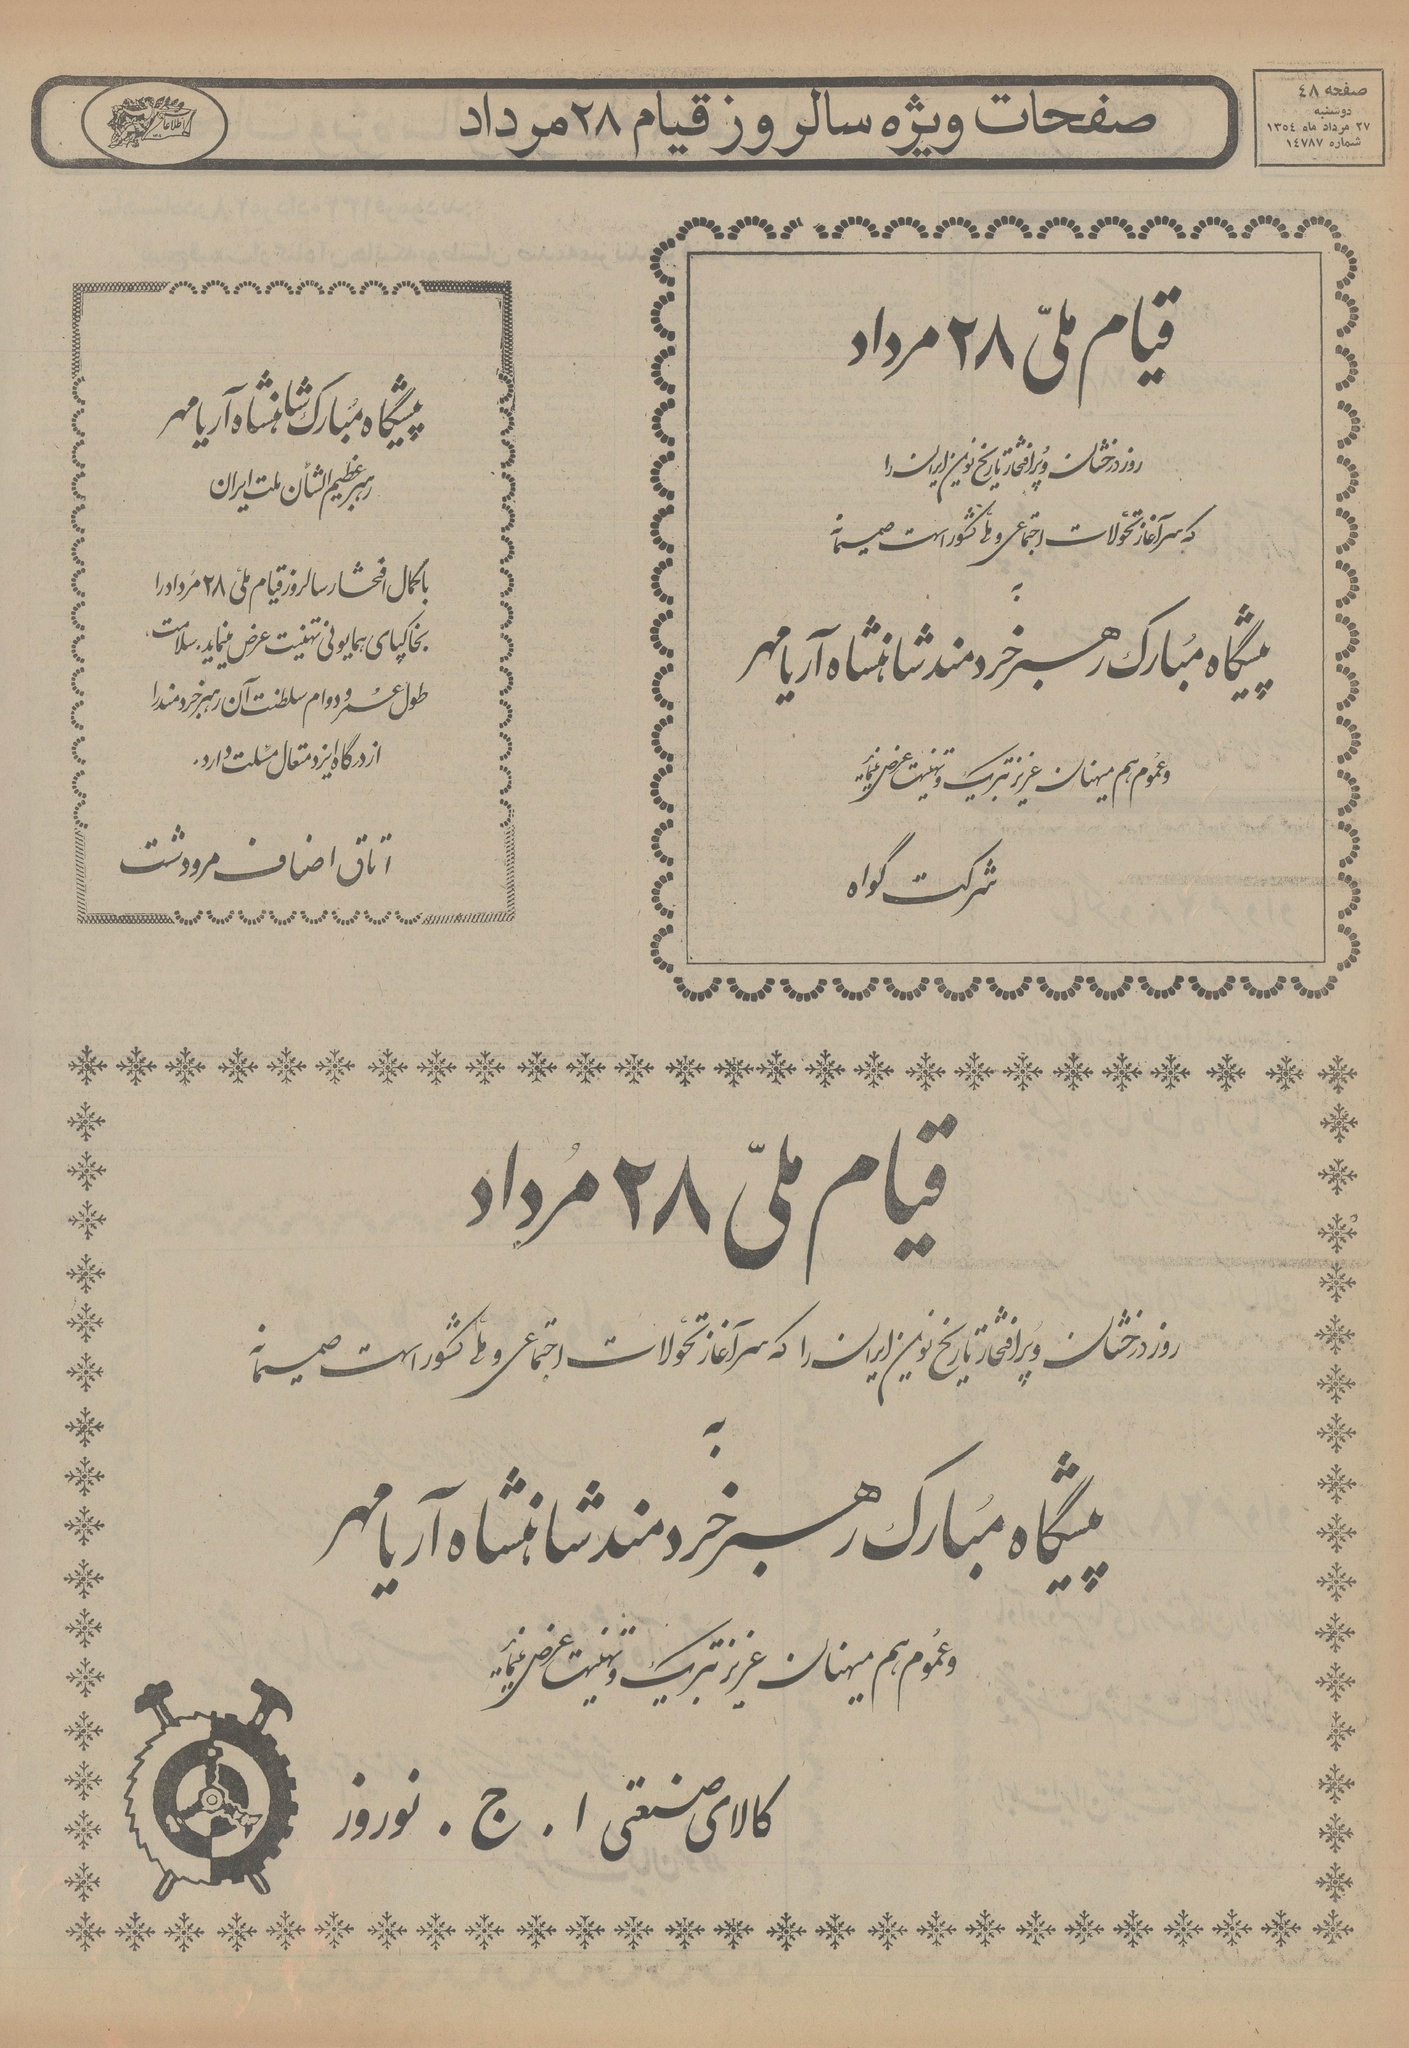 صفحه ٤٨
دوشنبه
٢٧ مرداد ماه ١٣٥٤
شماره ١٤٧٨٧
صفحات ویژه سالروز قیام ٢٨ مرداد
اطلاعات
قیام ملّی ٢٨ مرداد
روز درخشان و پُرافتخار تاریخ نوین ایران را
که سرآغاز تحوّلات اجتماعی و ملّی کشور است صمیمانه
به
پیشگاه مُبارک رهبر خردمند شاهنشاه آریامهر
و عمُوم هم میهنان عزیز تبریک و تهنیت عرض مینماید
شرکت گواه
پیشگاه مُبارک شاهنشاه آریامهر
رهبر عظیم الشأن ملت ایران
با کمال افتخار سالروز قیام ملّی ٢٨ مُرداد را
بخاکپای همایونی تهنیت عرض مینماید. سلامت،
طول عمر و دوام سلطنت آن رهبر خردمند را
از درگاه ایزد متعال مسئلت دارد.
اتاق اصناف مرودشت
قیام ملّی ٢٨ مُرداد
روز درخشان و پُرافتخار تاریخ نوین ایران را که سرآغاز تحوّلات اجتماعی و ملّی کشور است صمیمانه
به
پیشگاه مُبارک رهبر خردمند شاهنشاه آریامهر
و عمُوم هم میهنان عزیز تبریک و تهنیت عرض مینماید
کالای صنعتی ا . ج . نوروز